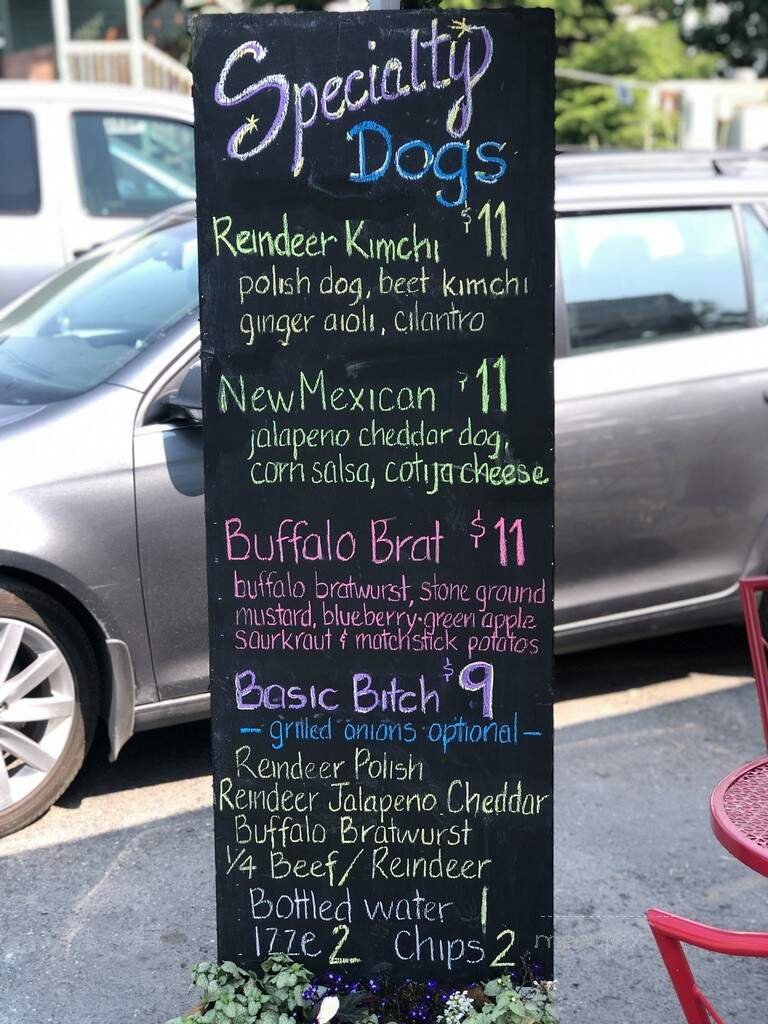 Specialty
Dogs
Reindeer Kimchi $11
polish dog, beet kimchi
ginger aioli, cilantro
New Mexican $11
jalapeno cheddar dog,
corn salsa, cotija cheese
Buffalo Brat $11
buffalo bratwurst, stone ground
mustard, blueberry-green apple
saurkraut & matchstick potatos
Basic Bitch $9
- grilled onions optional -
Reindeer Polish
Reindeer Jalapeno Cheddar
Buffalo Bratwurst
1/4 Beef/ Reindeer
Bottled water 1
IZZE 2 Chips 2